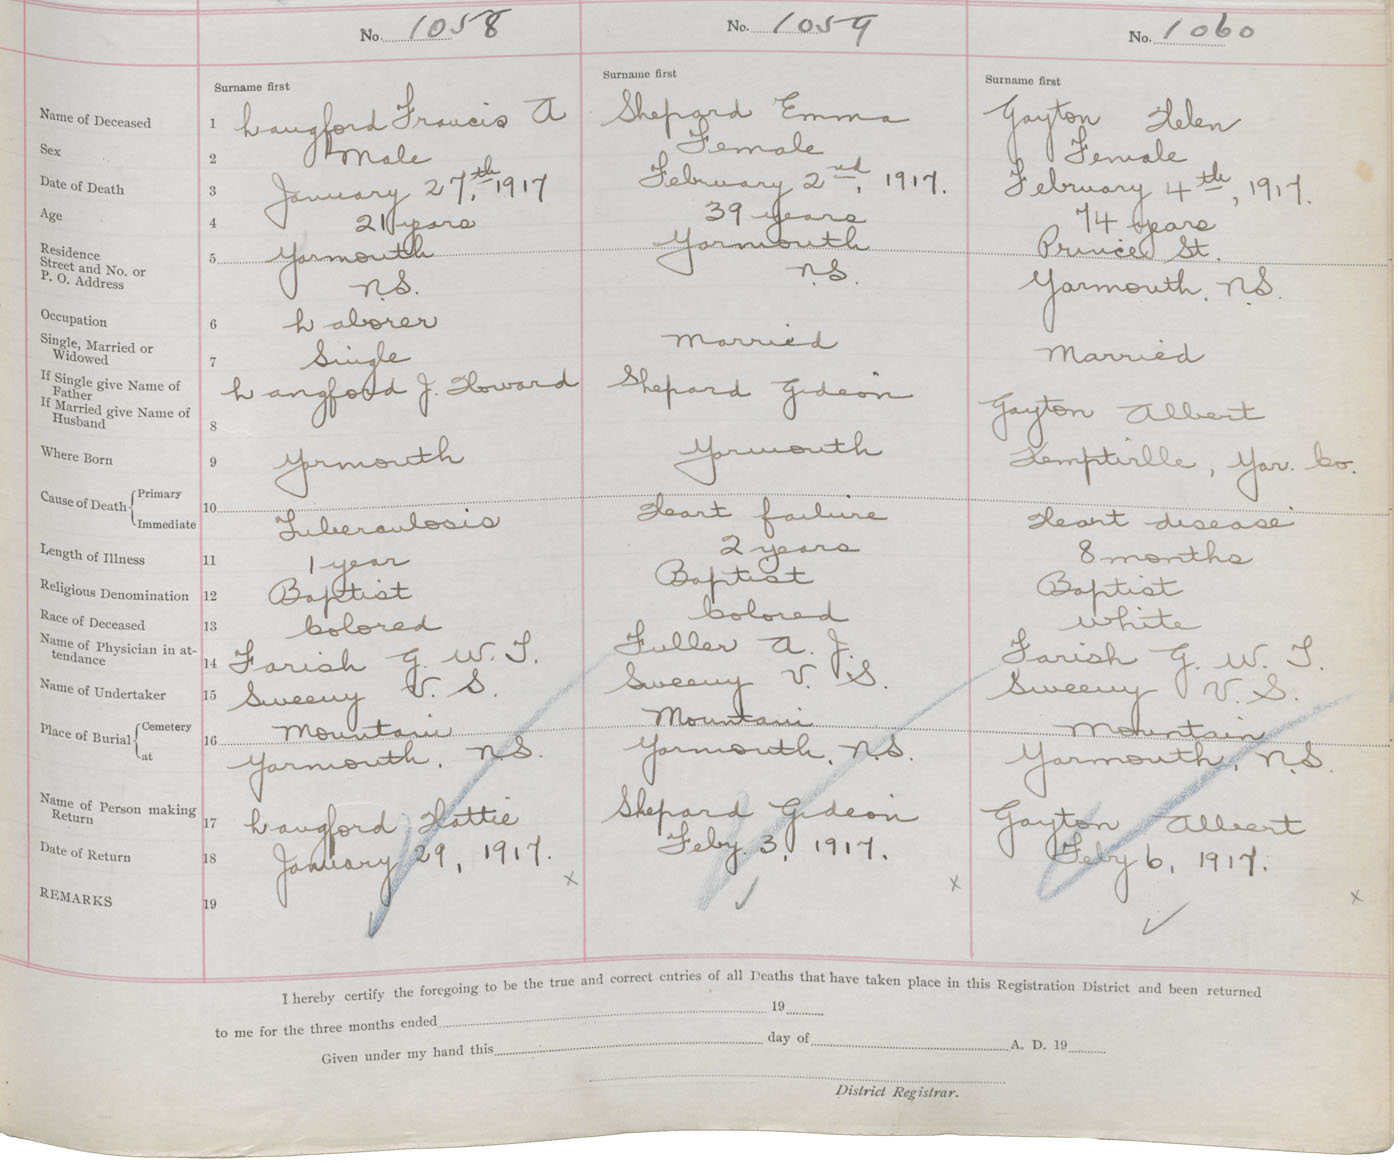 No. 1058 No. 1059 No. 1060
Surname first Surname first Surname first
Name of Deceased 1 Langford Francis A Shepard Emma Gayton Helen
Sex 2 Male Female Female
Date of Death 3 January 27th, 1917 February 2nd, 1917. February 4th, 1917.
Age 4 21 years 39 years 74 years
Residence
Street and No. or 5 Yarmouth Yarmouth Prince St.
P. O. Address N.S. N.S. Yarmouth, N.S.
Occupation 6 Laborer
Single, Married or
Widowed 7 Single Married Married
If Single give Name of
Father Langford J. Howard Shepard Gideon
If Married give Name of
Husband 8 Gayton Albert
Where Born 9 Yarmouth Yarmouth Kemptville, Yar. Co.
Cause of Death Primary 10
Immediate Tuberculosis Heart failure Heart disease
Length of Illness 11 1 year 2 years 8 months
Religious Denomination 12 Baptist Baptist Baptist
Race of Deceased 13 Colored Colored White
Name of Physician in at-
tendance 14 Farish G. W. T. Fuller A. J. Farish G. W. T.
Name of Undertaker 15 Sweeny V. S. Sweeny V. S. Sweeny V. S.
Place of Burial Cemetery 16 Mountain Mountain Mountain
at Yarmouth, N.S. Yarmouth, N.S. Yarmouth, N.S.
Name of Person making
Return 17 Langford Hattie Shepard Gideon Gayton Albert
Date of Return 18 January 29, 1917. Feby. 3, 1917. Feby 6, 1917.
REMARKS 19 x x x
I hereby certify the foregoing to be the true and correct entries of all Deaths that have taken place in this Registration District and been returned
to me for the three months ended 19
Given under my hand this day of A. D. 19
District Registrar.